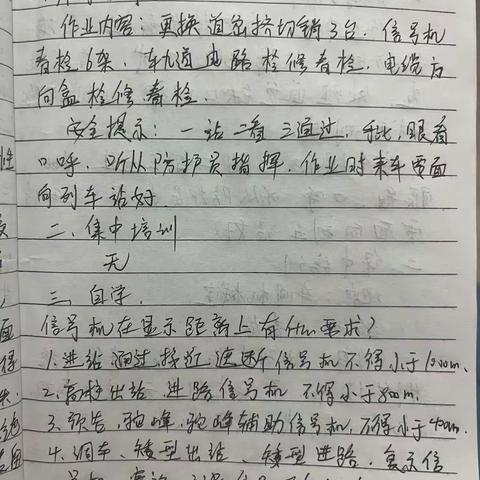 作业内容：更换道岔挤切销3台．信号机
春检6架．车九道电路检修春检．电缆方
向盒检修春检．
安全提示：一站二看三通过．手比，眼看
口呼．听从防护员指挥．作业时来车要面
向列车站好．
二、集中培训
无
三、自学．
信号机在显示距离上有什么要求？
1.进站 通过 接近 遮断信号机不得小于1000m．
2.高柱出站 进路信号机 不得小于800m．
3.预告．驼峰．驼峰辅助信号机．不得小于400m．
4.调车、矮型出站、矮型进路．复示信